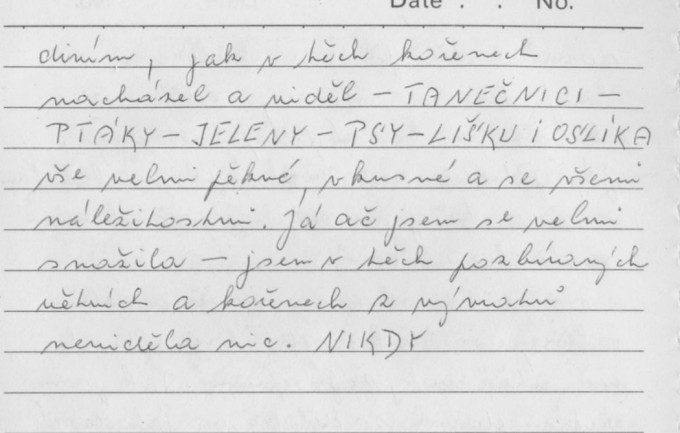 Date . . No.
divím, jak v těch kořenech
nacházel a viděl – TANEČNICI –
PTÁKY – JELENY – PSY – LIŠKU i OSLÍKA
vše velmi pěkné, vkusné a se všemi
náležitostmi. Já ač jsem se velmi
snažila – jsem v těch pozbíraných
větvích a kořenech z vývratů
neviděla nic. NIKDY